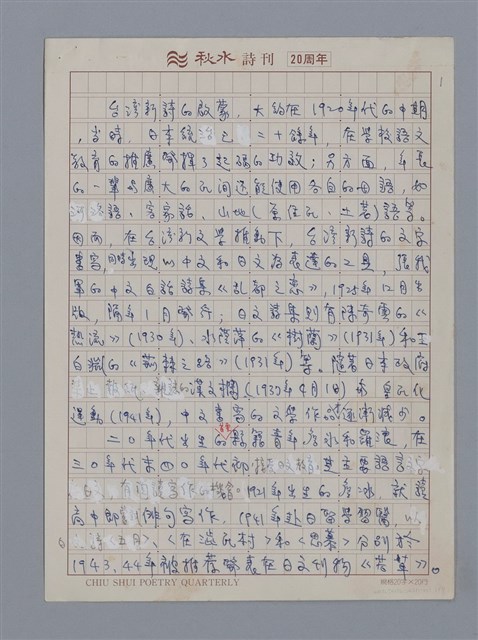 秋水詩刊 20周年
1
台湾新詩的啟蒙，大約在1920年代的中期
，当時，日本統治已二十餘年，在学校語文
教育的推廣發揮了起碼的功效；另方面，年長
的一輩與廣大的民间还能使用各自的母語，如
河洛語、客家話、山地（原住民、土著）語等。
因而，在台湾新文学推動下，台湾新詩的文字
書寫，同時出現以中文和日文為表達的工具，張我
軍的中文白話詩集《乱都之恋》，1925年12月出
版，隔年1月發行；日文詩集則有陳奇雲的《
热流》（1930年）、水蔭萍的《樹蘭》（1931年）和王
白淵的《荊棘之路》（1931年）等。隨著日本政府
漢文欄（1937年4月1日）和皇民化
運動（1941年），中文書寫的文学作品逐漸減少。
二〇年代出生的 青年 和 ，在
三〇年代末四〇年代初 日語
，有 寫作的機會。1921年出生的 ，就讀
高中即 俳句寫作，1941年赴日留学習醫，以
〈五月〉、〈在 村〉和〈思慕〉分別於
1943、44年被推荐發表在日文刊物《若草》。
CHIU SHUI POETRY QUARTERLY
稿紙20字×20行